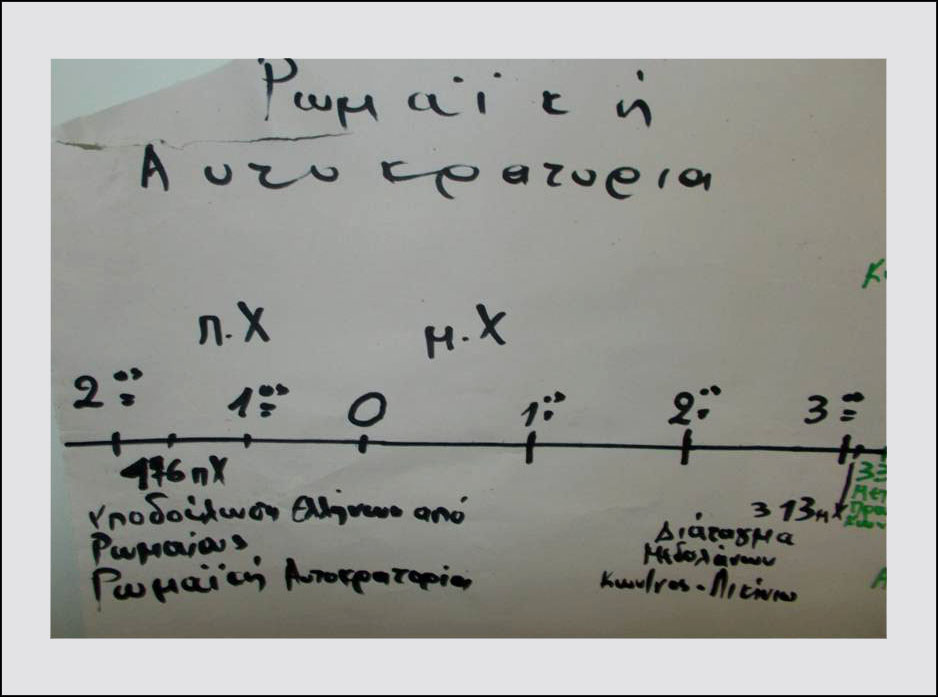 Ρωμαϊκή
Αυτοκρατορια
π.Χ μ.Χ
2ος 1ος 0 1ος 2ος 3ος
πΧ
313μΧ
Υποδούλωση Ελλήνων από
Ρωμαίους
Ρωμαϊκή Αυτοκρατορία
Διάταγμα
Μεδιολάνων
Κων/νος - Λικίνιος
33
Μετ
Πρω